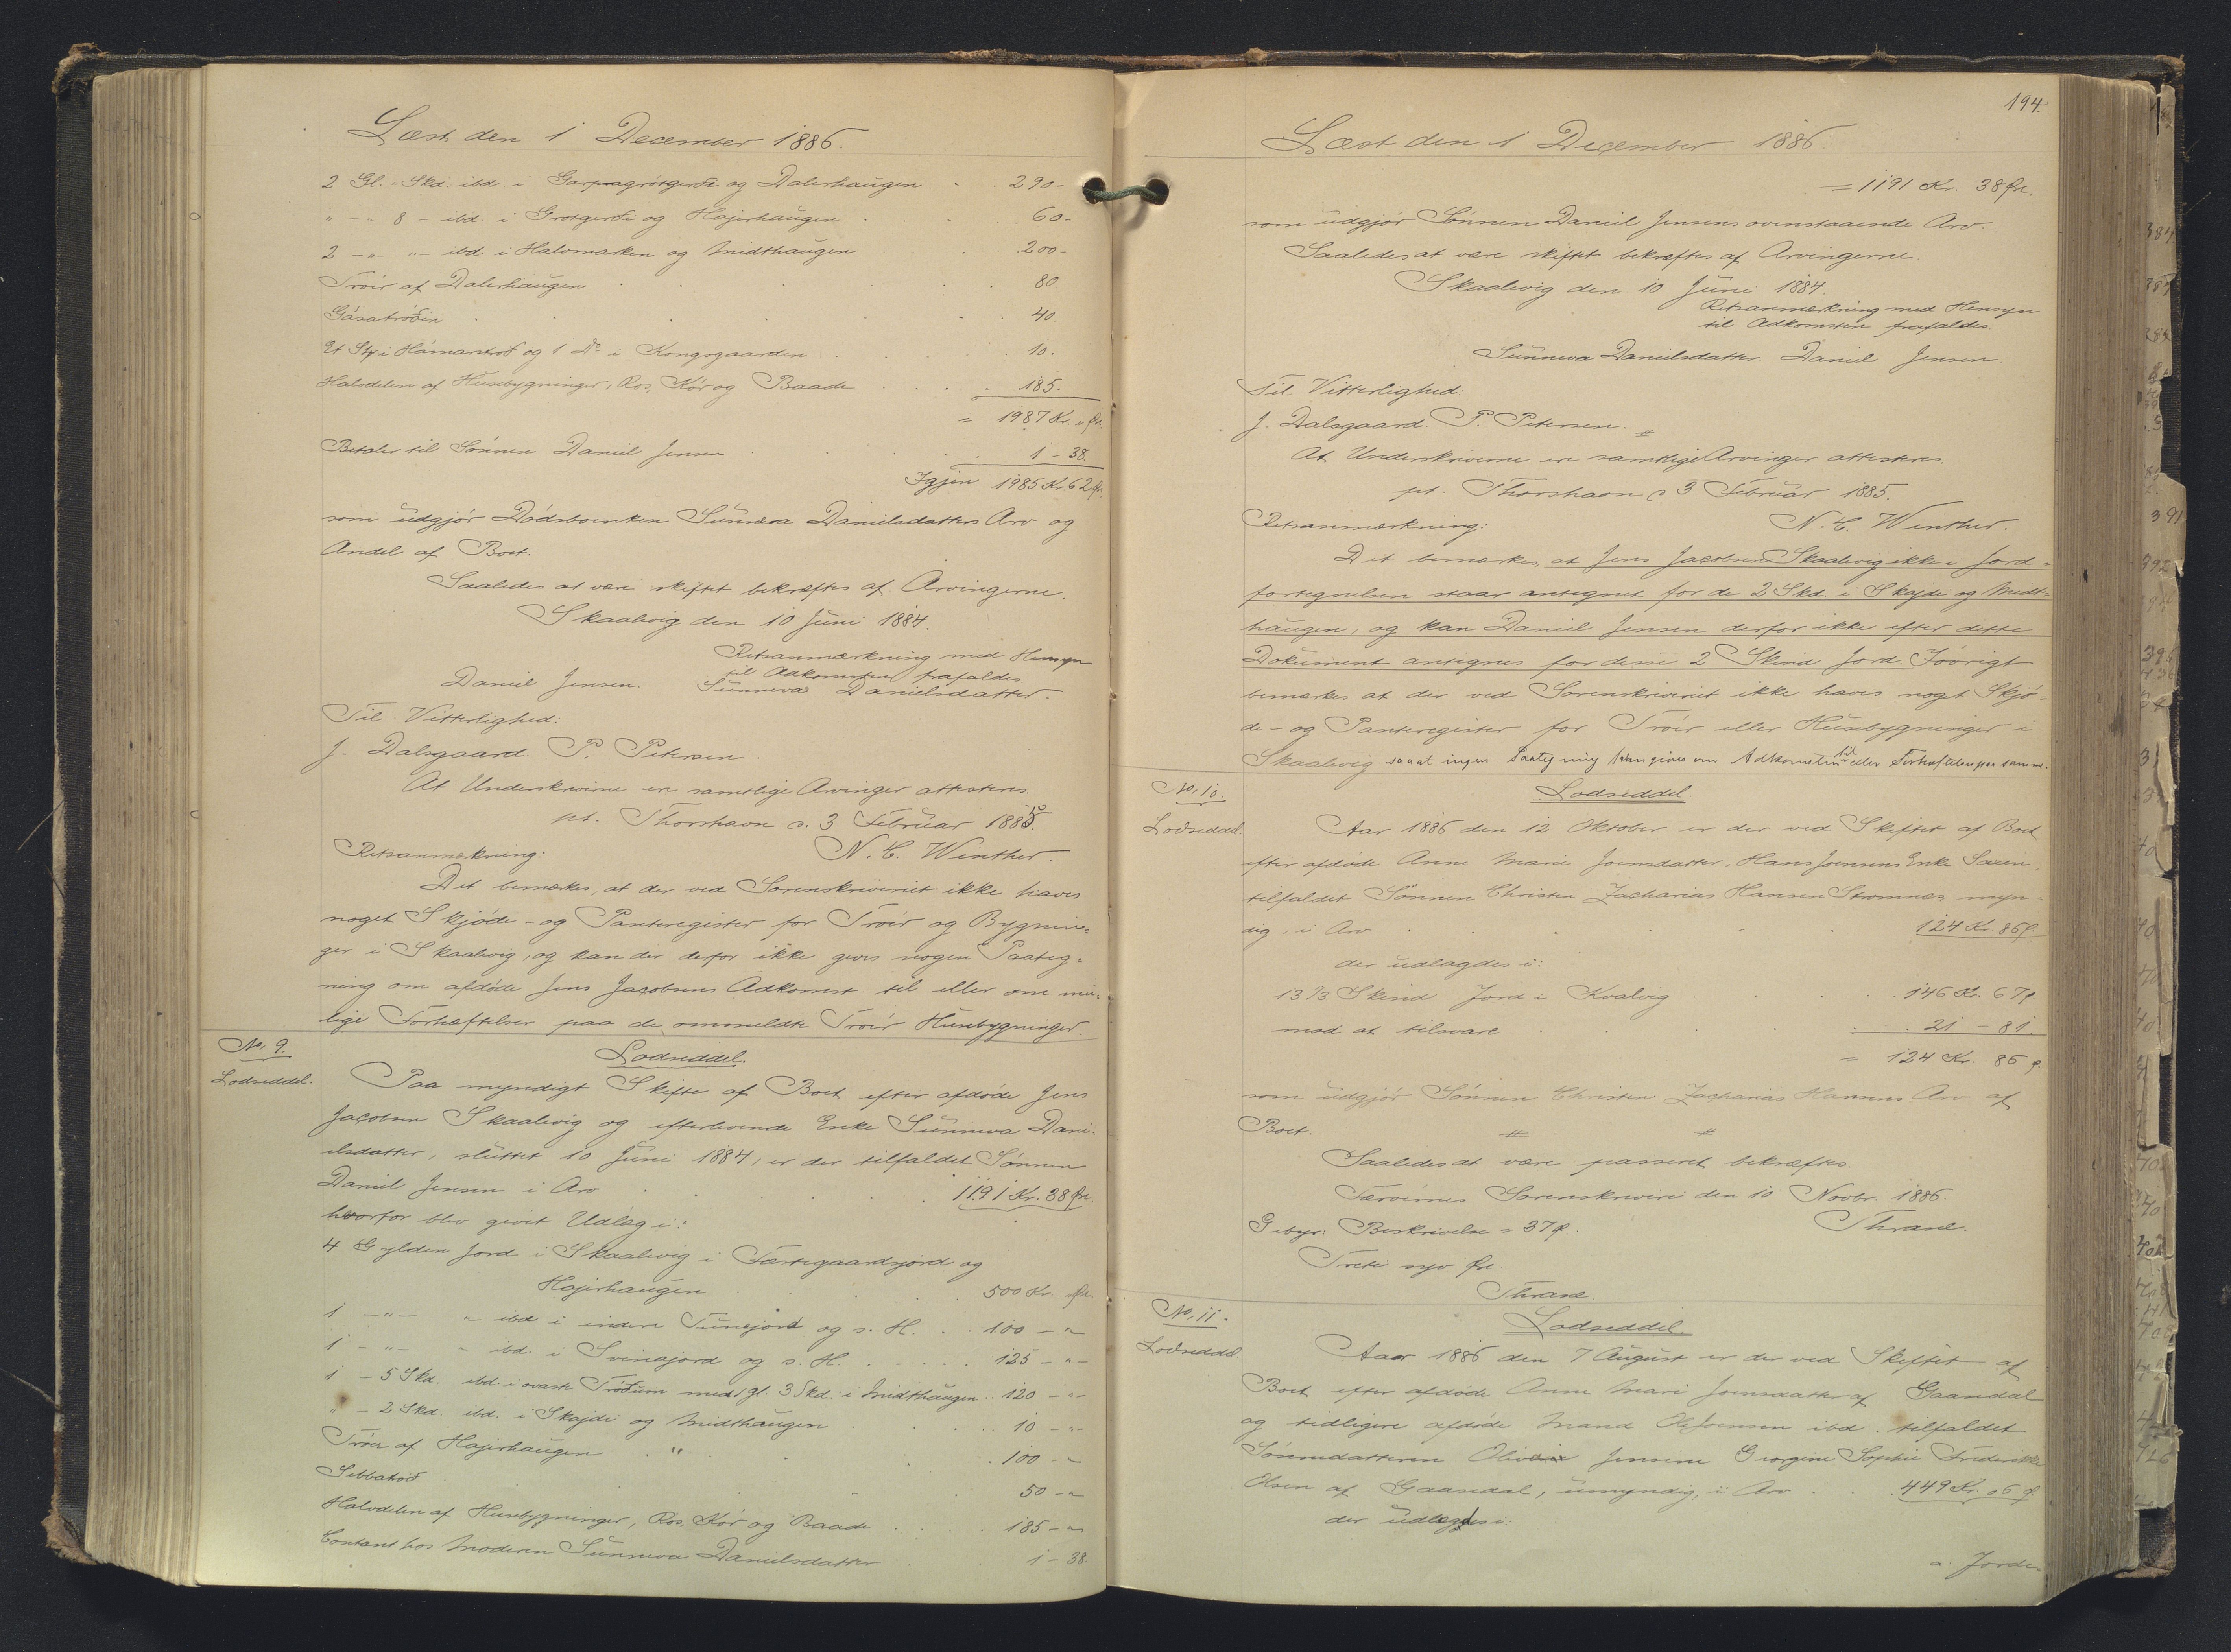 Læst den 1 December 1886.
2 Gl. " Skd. ibd. i Garpnagrótgerde og Dalerhaugen . . 290-
" - " 8 - ibd. i Grótgerdi og Hajirhaugen . . 60-
2 - " - " - ibd. i Halvmarken og Midthaugen . . 200-
Tröir af Dalerhaugen . . 80.
Gásatrödin . . 40
Et Stk i Hámarströd og 1 Do i Kongsgaarden . . 10.
Halvdelen af Husebygninger, Ros, Kór og Baade . . 185.
= 1987 Kr. " Øre.
Betaler til Sönnen Daniel Jensen . . 1 - 38.
Igjen 1985 Kr. 62 Øre
som udgjör Dödsboenken Sunneva Danielsdatters Arv og
Andel af Boet.
Saaledes at være skiftet bekræftes af Arvingerne.
Skaalevig den 10 Juni 1884.
Retsanmærkning med Hensyn
til Adkomsten frafaldes
Daniel Jensen. Sunneva Danielsdatter.
Til Vitterlighed:
J. Dalsgaard P. Petersen.
At Underskriverne ere samtlige Arvinger attesteres.
pt. Thorshavn d. 3 Februar 1885.
Retsanmærkning: N. C. Winther.
Det bemærkes, at der ved Sorenskriveriet ikke haves
noget Skjöde- og Panteregister for Tröir og Bygnin=
ger i Skaalevig, og kan der derfor ikke gives nogen Paateg=
ning om afdöde Jens Jacobsens Adkomst til eller om mu=
lige Forhæftelser paa de ommeldte Tröir Husebygninger.
No. 9.
Lodseddel.
Lodseddel.
Paa myndigt Skifte af Boet efter afdöde Jens
Jacobsen Skaalevig og efterlevende Enke Sunneva Dani=
elsdatter, sluttet 10 Juni 1884, er der tilfaldet Sönnen
Daniel Jensen i Arv . . 1191 Kr. 38 Øre.
hvorfor blev givet Udlæg i:
4 Gylden Jord i Skaalevig i Tartsgaardsjord og
Hajirhaugen . . 500 Kr. Øre.
1 - " - " ibd i indere Tunsjord og s. H. . . 100 - " -
1 - " - " ibd. i Svinajord og s. H. . . 125 - " -
1 - 5 Skd. ibd. i ovaste Tródum med 1 gl. 3 Skd. i Midthaugen . . 120 - " -
" - 2 Skd. ibd. i Skajde og Midthaugen . . 10 - " -
Tröer af Hajirhaugen . " . 100 - "
Sebbatröd . . 50 - "
Halvdelen af Husebygninger, Ros, Kór og Baade . . 185 - "
Contant hos Moderen Sunneva Danielsdatter . . 1 - 38.
194.
Læst den 1 December 1886
= 1191 Kr. 38 Øre.
som udgjör Sönnen Daniel Jensens ovenstaaende Arv.
Saaledes at være skiftet bekræftes af Arvingerne.
Skaalevig den 10 Juni 1884.
Retsanmærkning med Hensyn
til Adkomsten frafaldes
Sunneva Danielsdatter. Daniel Jensen
Til Vitterlighed:
J. Dalsgaard. P. Petersen.
At Underskriverne ere samtlige Arvinger attesteres.
pt. Thorshavn d 3 Februar 1885.
Retsanmærkning: N. C. Winther.
Det bemærkes, at Jens Jacobsen Skaalevig ikke i Jord=
fortegnelsen staar antegnet for de 2 Skd. i Skajde og Midt=
haugen, og kan Daniel Jensen derfor ikke efter dette
Dokument antegnes for disse 2 Skind Jord. Iövrigt
bemærkes at der ved Sorenskriveriet ikke haves noget Skjö=
de- og Panteregister for Tröir eller Husebygninger i
Skaalevig saaat ingen Paategning kan gives om Adkomsten til eller Forhæftelser paa samme.
No. 10.
Lodseddel.
Lodseddel.
Aar 1886 den 12 Oktober er der ved Skiftet af Boet
efter afdöde Anne Marie Joensdatter, Hans Joensens Enke Saxen,
tilfaldet Sönnen Christen Zacharias Hansen Strömnæs myn=
dig, i Arv . . 124 Kr. 86 Ø.
der udlagdes i:
13 1/3 Skind Jord i Kvalvig . . 146 Kr. 67 Ø.
mod at tilsvare . . 21 - 81.
= 124 Kr. 86 Ø.
som udgjör Sönnen Christen Zacharias Hansens Arv af
Boet.
Saaledes at være passeret bekræftes.
Færöernes Sorenskriveri den 10 Novbr. 1886.
Gebyr: Beskrivelse = 37 Ø. Thrane.
Treti syv Øre.
Thrane
No. 11.
Lodseddel
Lodseddel.
Aar 1886 den 7 August er der ved Skiftet af
Boet efter afdöde Anne Mari Joensdatter af Gaasedal
og tidligere afdöde Mand Ole Joensen ibd. tilfaldet
Sönnedatteren Olivine Jensine Georgine Sophie Frederikke
Olsen af Gaasedal, umyndig, i Arv . . 449 Kr. 06 Ø.
der udlægges i:
a. Jorde